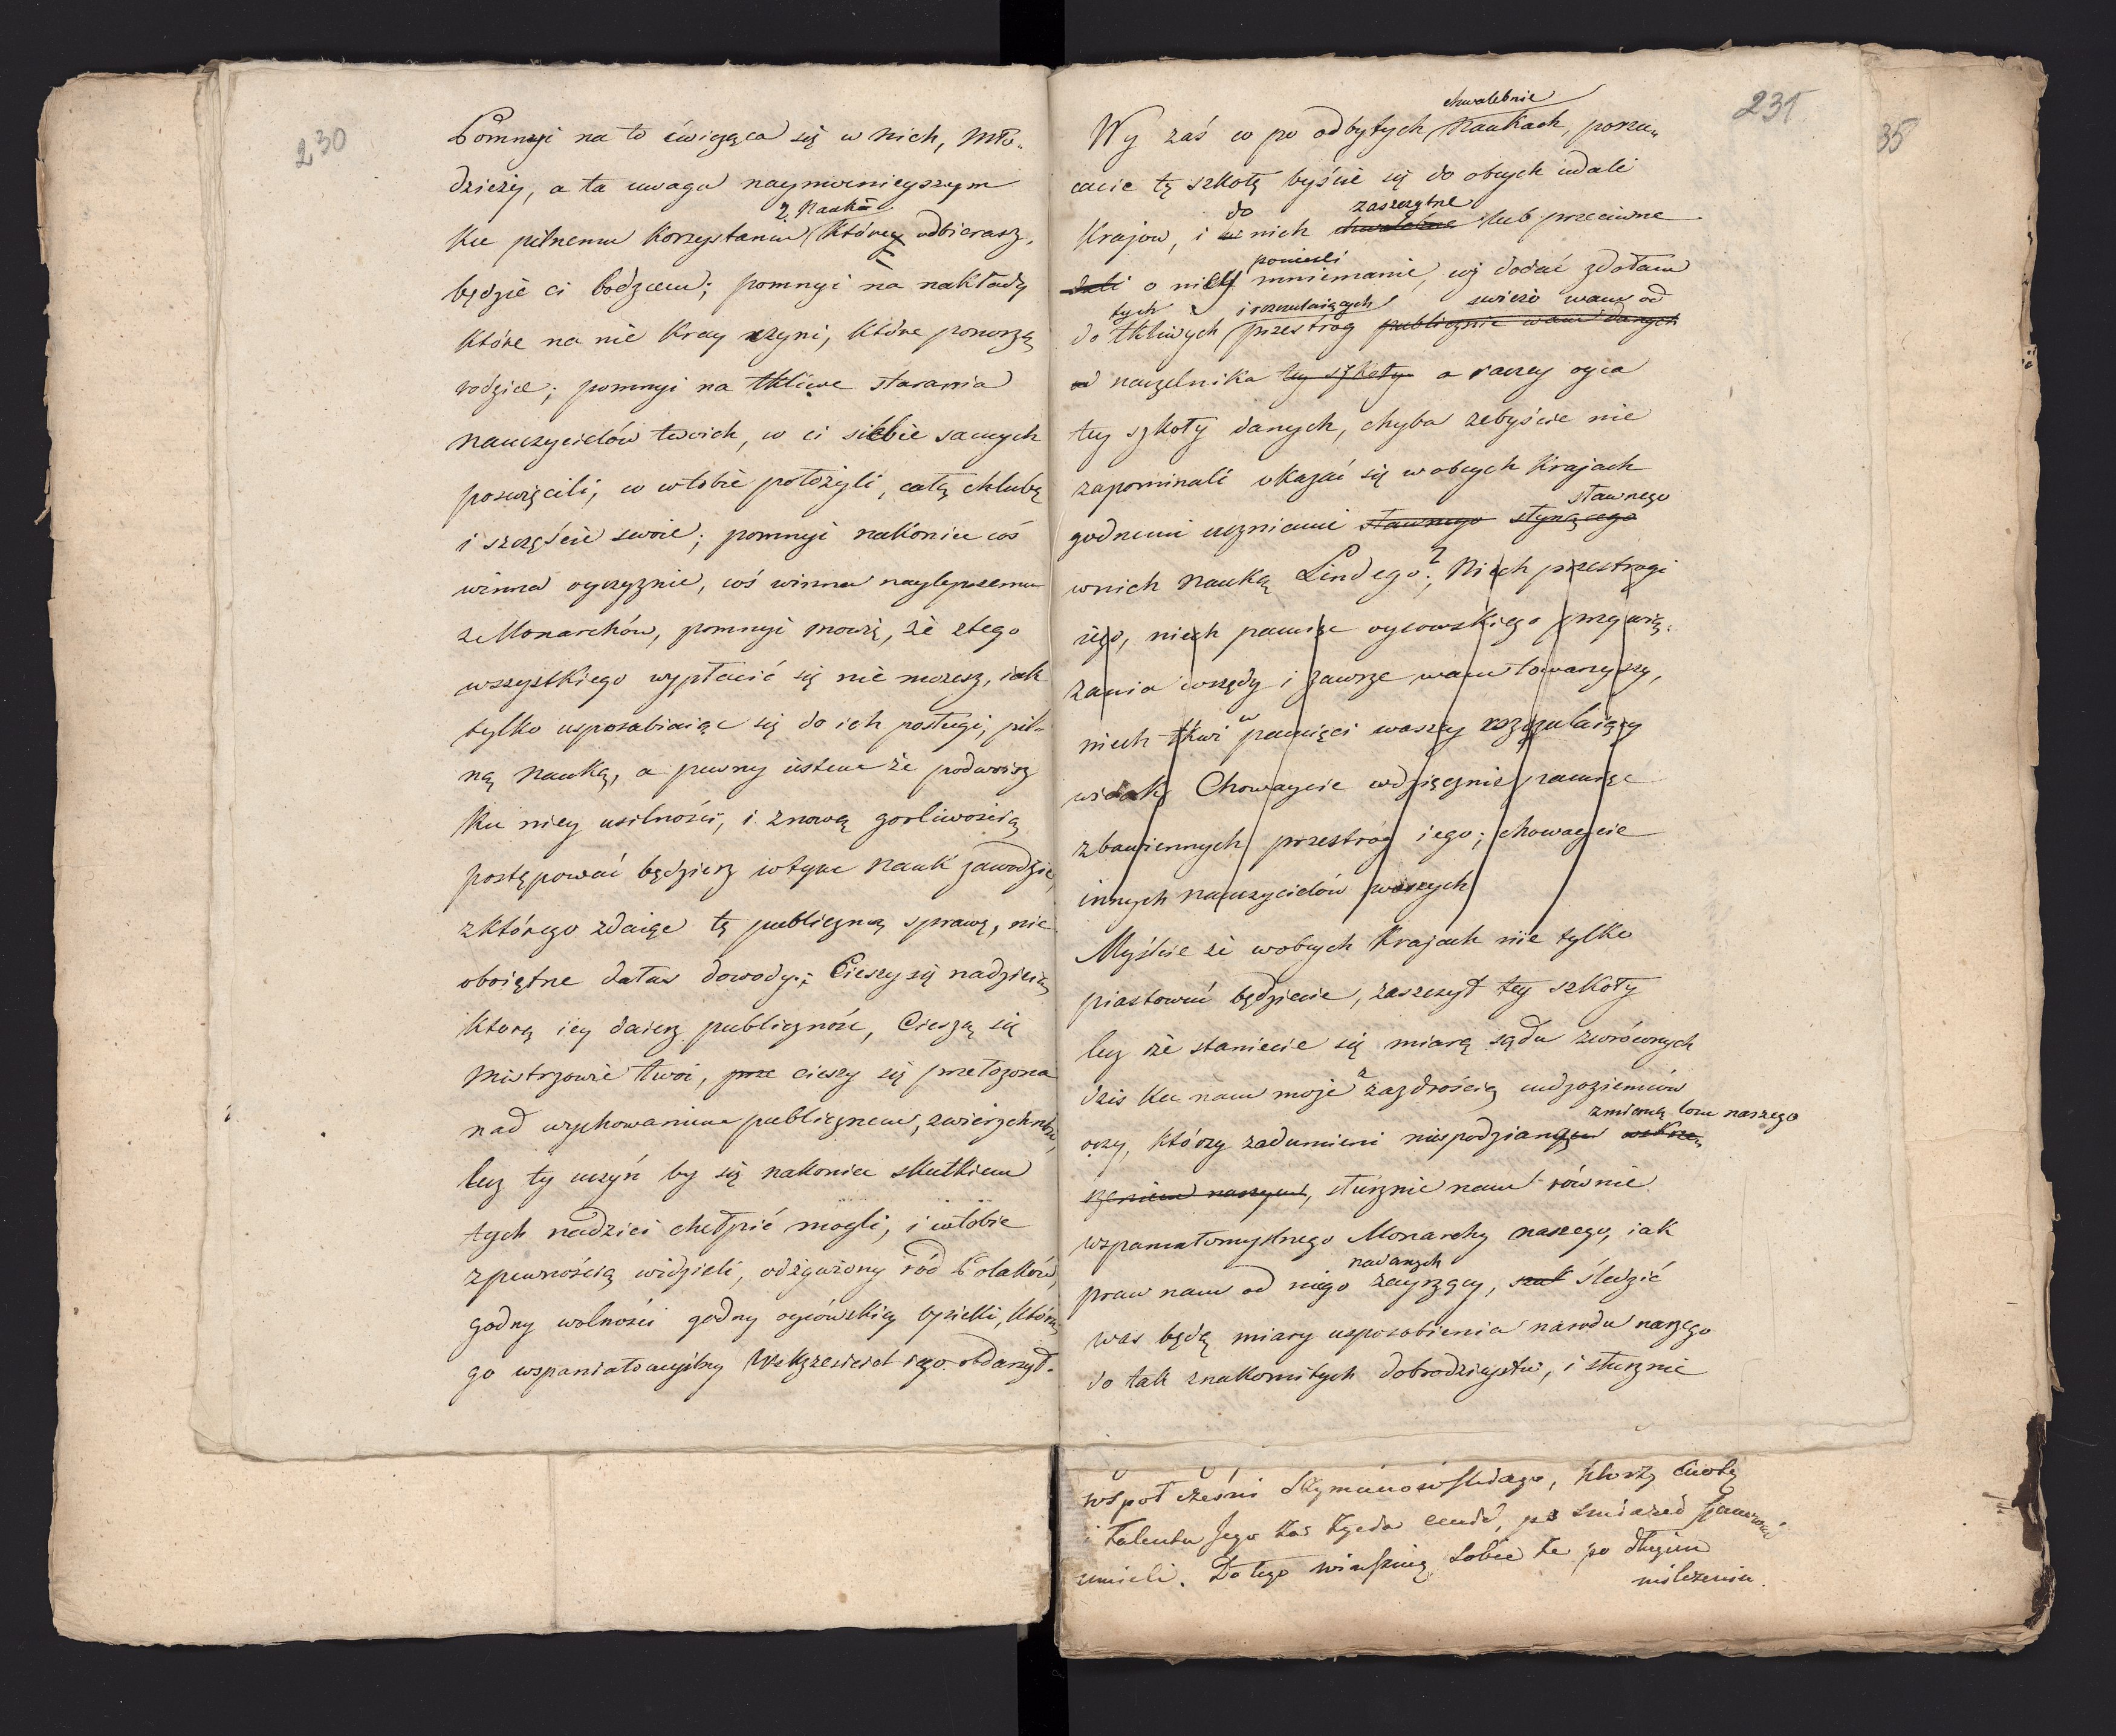 230
Pomnyi na to ćwicząca się w nich, Mło„
dzieży, a ta uwaga naymocnieyszym
z Nauk
ku pilnemu korzystaniu które odbierasz,
będzie ci bodzcem; pomnyi na nakłady
które na nie kray czyni, które ponoszą
rodzice; pomnyi na tkliwe starania
nauczycielów twoich, co ci siebie samych
poswięcili, co w tobie położyli, całą chlubę
i szczęście swoie; pomnyi nakoniec coś
winna oyczyznie, coś winna naylepszemu
z Monarchów, pomnyi mowię, że z tego
wszystkiego wypłacić się nie mozesz, iak
tylko usposabiaiąc się do ich posługi, pil„
ną nauką, a pewny iestem że podwoisz
ku niey usilności, i z nową gorliwością
postępować będziesz w tym nauk zawodzie,
z którego zdaiąc tę publiczną sprawę, nie
oboiętne dałaś dowody; Cieszy się nadzieią
ktorą iey daiesz publiczność, Cieszą się
Mistrzowie twoi, prze cieszy się przełozona
nad wychowaniem publicznem, zwierzchność,
lecz ty uczyń by się nakoniec skutkiem
tych nadziei chełpić mogli, i w tobie
z pewnością widzieli, odżywiony ród Polaków,
godny wolności godny oycowskiey opieki, którą
go wspaniałomyślny Wskrzesiciel iego obdarzył.
231
35
chwalebnie
Wy zaś co po odbytych Naukach, porzu„
cacie tę szkołę byście się do obcych udali
do zaszczytne
Krajow, i w nich chwalebne lub przeciwne
ponieśli
dali o niey mniemanie, cóż dodać zdołam
tych i rozczulaiących swieżo wam od
do tkliwych przestrog publicznie wam danych
od naczelnika tey szkoły a raczey oyca
tey szkoły danych, chyba żebyście nie
zapominali okazać się w obcych Krajach
sławnego
godnemi uczniami sławnego słynącego
w nich nauką Lindego? Niech przestrogi
iego, niech pamięc oycowskiego przywią„
zania wszędy i zawsze wam towarzyszy,
niech tkwi w pamięci waszey rozczulaiący
widok Chowaycie wdzięcznie pamięc
zbawiennych przestrog iego; chowaycie
innych nauczycielów waszych
Myślcie że w obcych Krajach nie tylko
piastować będziecie, zaszczyt tey szkoły
lecz że staniecie się miarą sądu zwróconych
dzis ku nam moje z zazdrością cudzoziemców
zmianą losu naszego
oczy, którzy zadumieni niespodzianym wskrze„
szeniem naszym, słusznie nam równie
wspaniałomyślnego Monarchy naszego, iak
nadanych
praw nam od niego zayrzący, szuk śledzić
was będą miary usposobienia narodu naszego
do tak znakomitych dobrodzieystw, i słusznie
wspołcześni Szymanowskiego, ktorzy cnotę
i talenta Jego za życia
umieli. Do tego sobie te po długim
milczeniu.